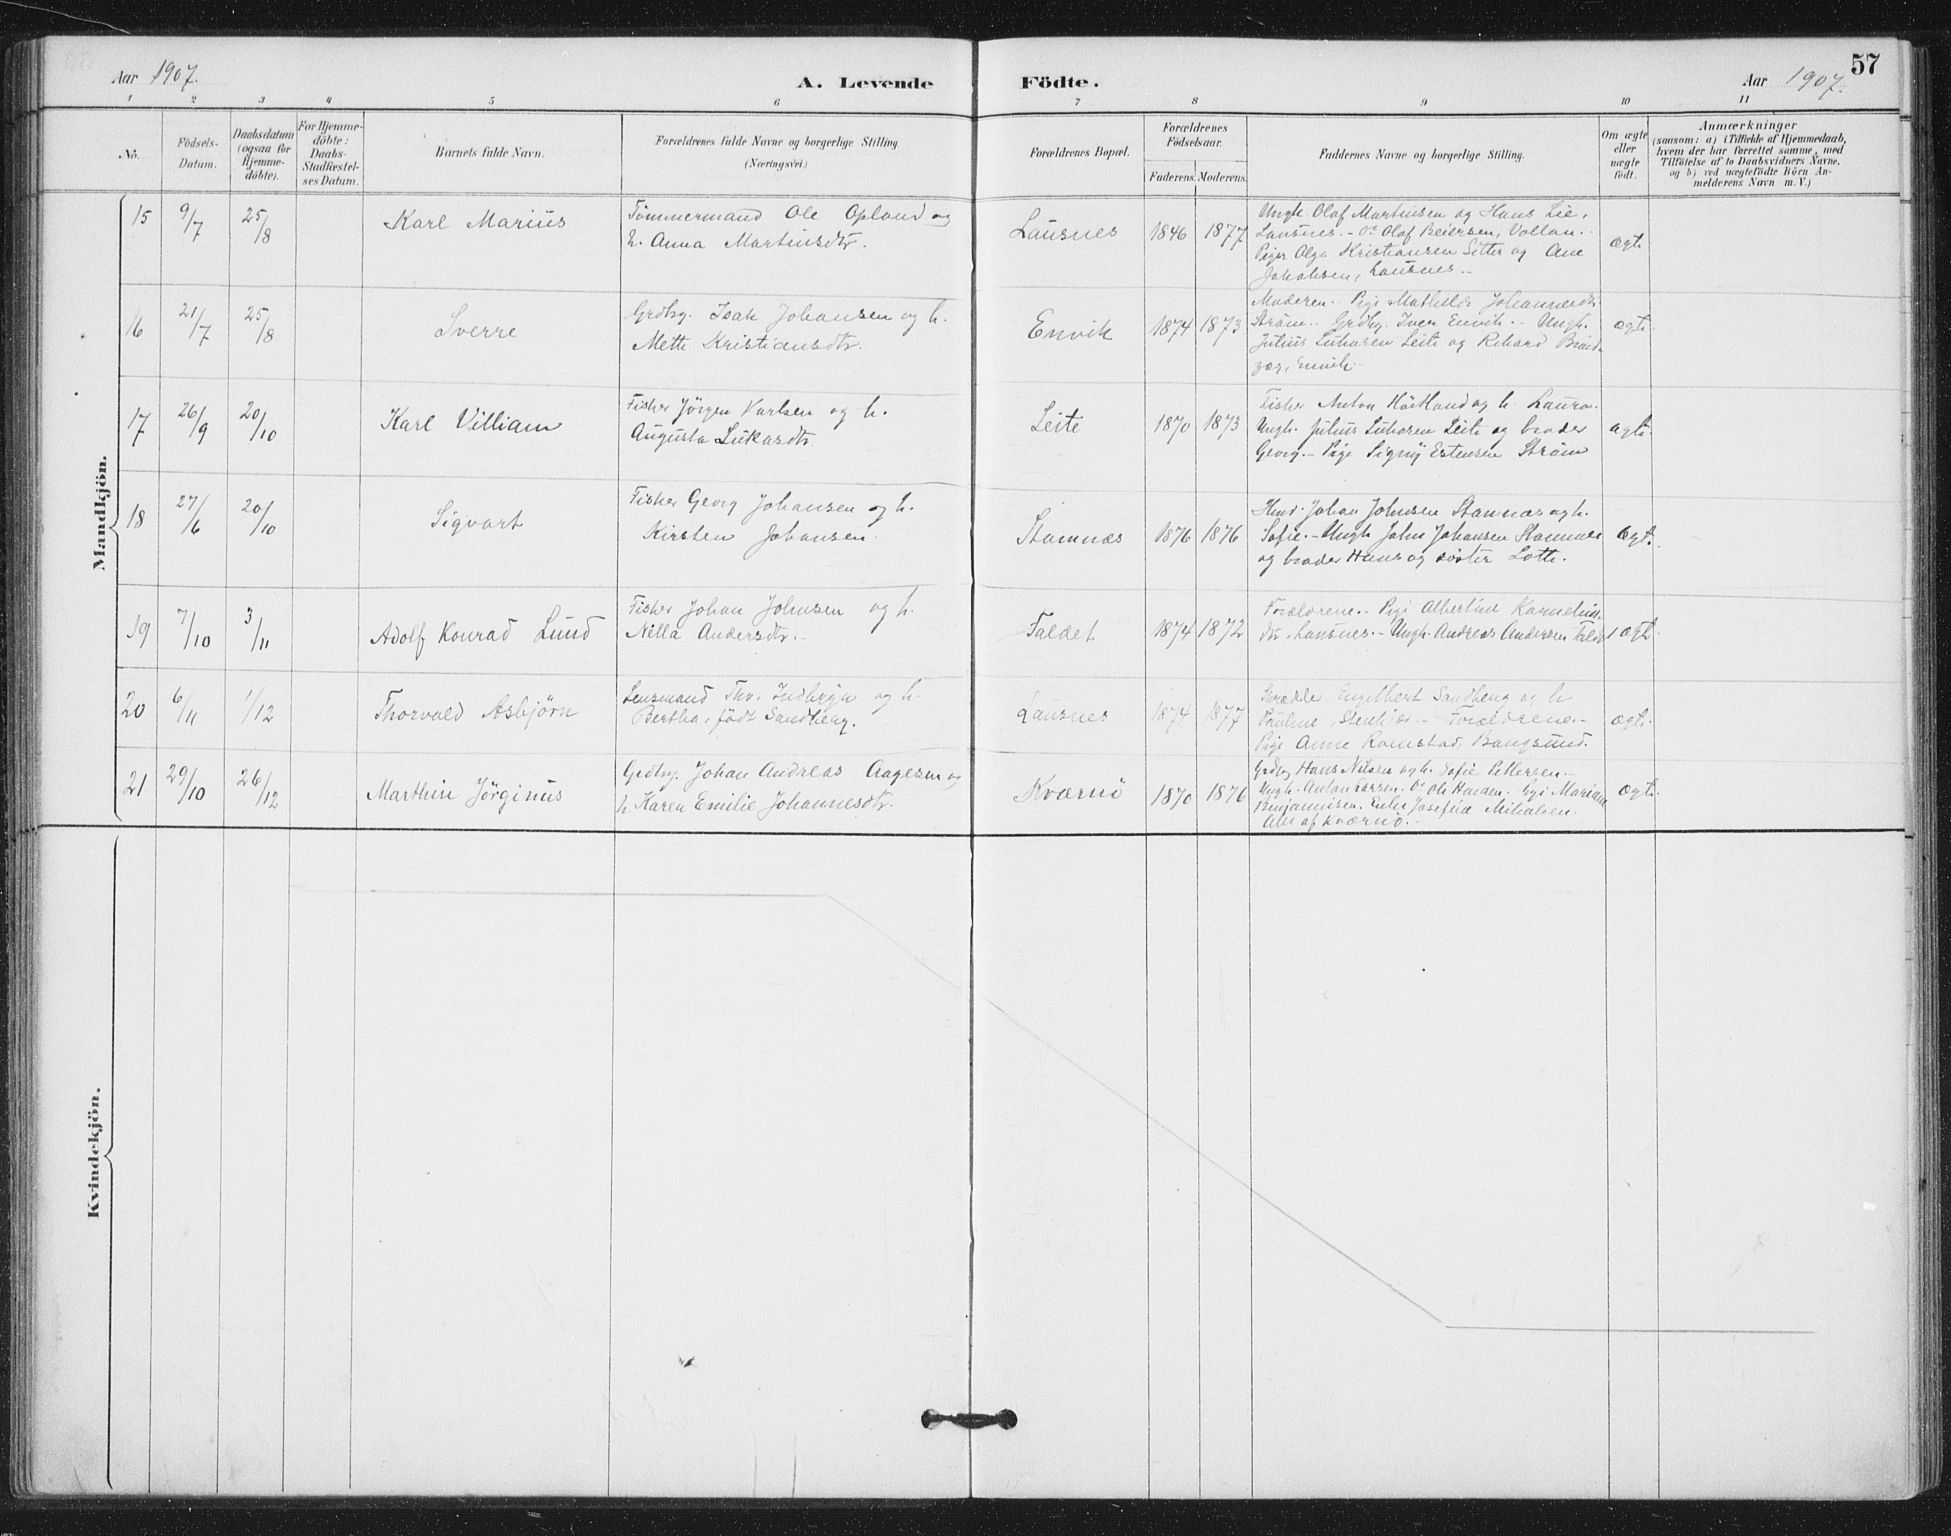 57
Aar 1907.
A. Levende Födte.
Aar 1907.
1 2 3 4 5 6 7 8 9 10 11
No.
Födsels-
Datum.
Daabsdatum
(ogsaa for
Hjemme-
döbte).
For Hjemme-
döbte:
Daabs-
Stadfæstel-
ses Datum.
Barnets fulde Navn.
Forældrenes fulde Navne og borgerlige Stilling
(Næringsvei.)
Forældrenes Bopæl.
Forældrenes
Födselsaar.
Faderens. Moderens.
Faddernes Navne og borgerlige Stilling.
Om ægte
eller
uægte
födt.
Anmærkninger
(saasom: a) i Tilfælde af Hjemmedaab,
hvem der har forrettet samme, med
Tilföielse af to Daabsvidners Navne,
og b) ved uægtefödte Börn An-
melderens Navn m. V.)
Mandkjön.
15 9/7 25/8 Karl Marius
Tømmermand Ole Opland og
h. Anna Martinsdtr.
Lausnes 1846 1877
Ungk. Olaf Martinsen og Hans Lie,
Lausnes. - Olaf Beiersen, Vollan.
Piger Olga Kristiansen Sitter og Ane
Johansen, Lausnes.
ægte
16 21/7 25/8 Sverre
Grdbg. Isak Johansen og h.
Mette Kristiansdtr.
Envik 1874 1873
Moderen. - Pige Mathilde Johannesdtr
Strøm. - Grdbg. Iver Envik. - Ungk.
Julius Lukasen Leite og Rikard
Envik.
ægte
17 26/9 20/10 Karl Villiam
Fisker Jørgen Karlsen og h.
Augusta Lukasdtr.
Leite 1870 1873
Fisker Anton Høstland og h. Laura.
Ungk. Julius Lukasen Leite og broder
Georg. - Pige Signy Estensen Strøm
ægte.
18 27/6 20/10 Sigvart
Fisker Georg Johansen og h.
Kirsten Johansen.
Stamnæs 1876 1876
Johan Johnsen Stamnæs og h.
Sofie. - Ungk. John Johansen Stamnæs
og broder Hans og søster Lotte.
Ægt.
19 7/10 3/11 Adolf Konrad Lund
Fisker Johan Johnsen og h.
Nilla Andersdtr.
Faldet 1874 1872
Forældrene. - Pige Albertine Kornelius
dtr. Lausnes. - Ungk. Andreas Andersen
ægte
20 6/11 1/12 Thorvald Asbjørn
Lensmand Thv. Indbryn og h.
Bertha, født Sandberg.
Lausnes 1874 1877
Skrædder Engelbert Sandberg og h
Pauline - Forældrene. -
Pige Anne Romstad, Bangsund.
ægte.
21 29/10 26/12 Marthin Jørginus
Grdbg. Johan Andreas Aagesen og
h. Karen Emilie Johannesdtr.
Kværnø 1870 1876
Grdbg Hans Nilsen og h. Sofie Pettersen. -
Ungk. Anton Larsen. Ole Hansen. Pige Mariane
Benjaminsen. Enke Josefine Mikalsen.
Alle af Kværnø. -
Ægte.
Kvindekjön.